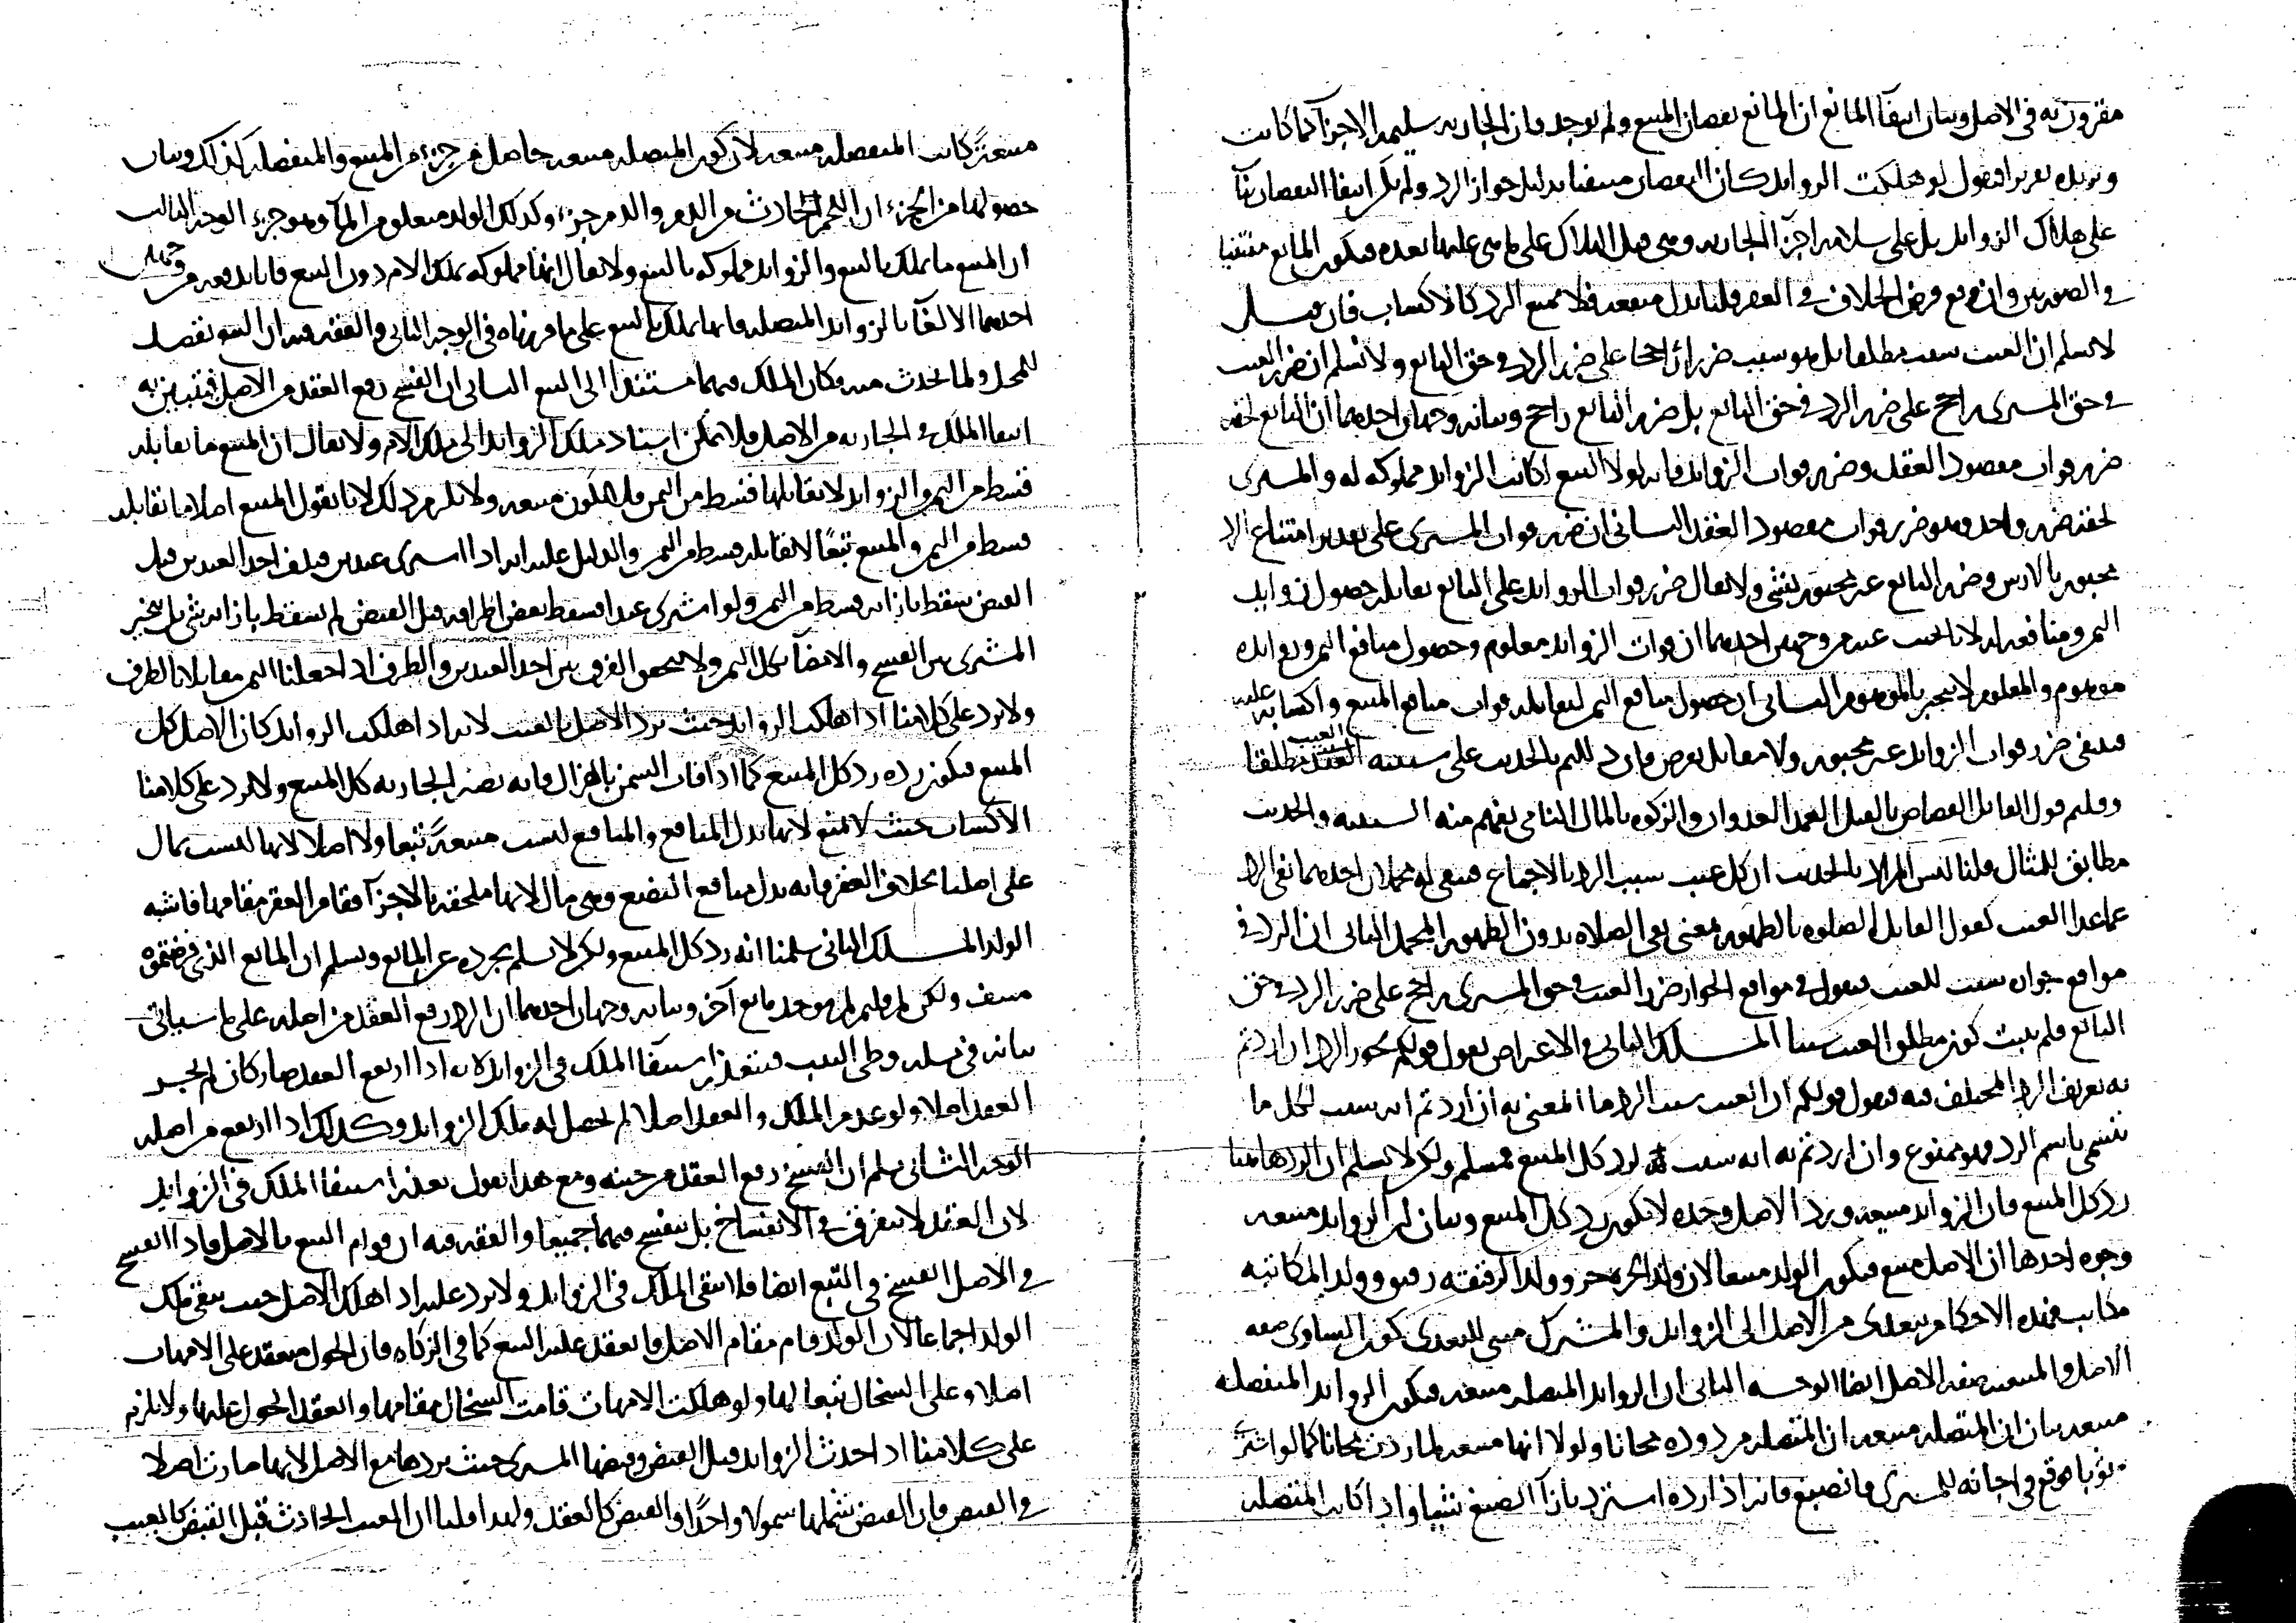 مقرونة في الاصل وبيان انتفاء المانع ان المانع نقصان المبيع ولم يوجد فان الجارية سليمة الاجزاء كما كانت
ونزيده تقريرا فنقول لو هلكت الزوايد كان النقصان منتفيا بدليل جواز الرد ولم يكن انتفاء النقصان بناء
على هلاك الزوايد بل على سلامة اجزاء الجارية وهي قبل الهلاك على ما هي عليها بعده فيكون المانع منتفيا
في الصورتين وان وقع فرض الخلاف في العقر قلنا بدل منفعة فلا يمنع الرد كالاكساب فان قيل
لا نسلم ان العيب سبب مطلقا بل هو سبب ضررا راجحا على ضرر الرد في حق البائع ولا نسلم ان ضرر العيب
في حق المشتري راجح على ضرر الرد في حق البائع بل ضرر البائع راجح وبيانه وجهان احدهما ان البائع لحقه
ضرر فوات مقصود العقد وضرر فوات الزوايد فانه لولا البيع لكانت الزوايد مملوكة له والمشتري
لحقه ضرر واحد وهو ضرر فوات مقصود العقد الثاني ان ضرر فوات المشتري على تقدير امتناع الرد
مجبور بالارش وضرر البائع غير مجبور بشي ولا يقال ضرر فوات الزوايد على البائع يقابله حصول زوايد
الثمن ومنافعه له لانا نجيب عنه من وجهين احدهما ان فوات الزوايد معلوم وحصول منافع الثمن وزوايده
موهوم والمعلوم لا ينجبر بالموهوم الثاني ان حصول منافع الثمن ليقابله فوات منافع المبيع واكسابه عليه
فيبقى ضرر فوات الزوايد غير مجبور ولا مقابل بعوض فان دللتم بالحديث على سببية العيب مطلقا
وقلتم قول القائل القصاص بالقتل العمد العدوان والزكوة بالمال النامي يفهم منه السببية والحديث
مطابق للمثال قلنا ليس المراد بالحديث ان كل عيب سبب الرد بالاجماع فبقي له محملان احدهما نفي الرد
عما عدا العيب كقول القائل الصلوة بالطهور معنى نفي الصلاة بدون الطهور المحمل الثاني ان الرد في
مواقع جوازه سبب للعيب فنقول في مواقع الجواز ضرر العيب في حق المشتري راجح على ضرر الرد في حق
البائع فلم يثبت كون مطلق العيب سببا المسلك الثاني في الاعتراض نقول قولكم يجوز الرد ان اردتم
به تعريف الرد المختلف فيه فنقول قولكم ان العيب سبب الرد ما المعني به ان اردتم انه سبب لكل ما
يسمى باسم الرد فهو ممنوع وان اردتم به انه سبب لرد كل المبيع فمسلم ولكن لا نسلم ان الرد هاهنا
رد كل المبيع فان الزوايد مبيعة ورد الاصل وحده لا يكون رد كل المبيع وبيان ان الزوايد مبيعة
وجوه احدها ان الاصل مبيع فيكون الولد مبيعا لان ولد الحرة حر وولد الرقيقة رقيق وولد المكاتبة
مكاتب فهذه الاحكام يتعدى من الاصل الى الزوايد والمشترك بينهما للتعدي كون التساوي صفة
الاصل والمبيعية صفة الاصل ايضا الوجه الثاني ان الزوايد المتصلة مبيعة فيكون الزوايد المنفصلة
مبيعة بيان ان المتصلة مبيعة ان المتصلة مردودة مجانا ولولا انها مبيعة لما ردت مجانا كما لو اشترى
ثوبا فوقع في اجانة للمشتري فانصبغ فانه اذا رده استرد بازاء الصبغ شيئا واذا كانت المتصلة
مبيعة كانت المنفصلة مبيعة لان كون المتصلة مبيعة حاصل من جزء من المبيع والمنفصلة كذلك وبيان
حصولها من الجزء ان اللحم الحادث من الدم والدم جزء وكذلك الولد معلوم من الماء وهو جزء الوجه الثالث
ان المبيع ما يملك بالبيع والزوايد مملوكة بالبيع ولا يقال انها مملوكة بملك الام دون البيع فانا ندفعه من وجهين
احدهما الالغاء بالزوايد المتصلة فانها تملك بالبيع على ما قررناه في الوجه الثاني والفقه فيه ان البيع تفصيل
للمحل ولما يحدث منه وكان الملك فيهما مستندا الى البيع الثاني ان الفسخ رفع العقد من الاصل فيتبين به
انتفاء الملك في الجارية من الاصل فلا يمكن اسناد ملك الزوايد الى ملك الام ولا يقال ان المبيع ما يقابله
قسط من الثمن والزوايد لا يقابلها قسط من الثمن فلا تكون مبيعة ولا يلزم ذلك لانا نقول المبيع اصلا ما يقابله
قسط من الثمن والمبيع تبعا لا يقابله قسط من الثمن والدليل عليه انه اذا اشترى عبدين فتلف احد العبدين قبل
القبض يسقط بازائه قسط من الثمن ولو اشترى عبدا فسقط بعض اطرافه قبل القبض لم يسقط بازائه شي بل يتخير
المشتري بين الفسخ والامضاء بكل الثمن ولا يتمحض الفرق بين احد العبدين والطرف اذا جعلنا الثمن مقابلا بالطرف
ولا يرد على كلامنا اذا هلكت الزوايد حيث يرد الاصل بالعيب لانه اذا هلكت الزوايد كان الاصل كل
المبيع فيكون رده رد كل المبيع كما اذا فات السمن بالهزال فانه تصير الجارية كل المبيع ولا يرد على كلامنا
الاكساب حيث لا تمنع لانها بدل المنافع والمنافع ليست مبيعة تبعا ولا اصلا لانها ليست بمال
على اصلنا بخلاف العقر فانه بدل منافع البضع وهي مال لانها ملحقة بالاجزاء فقام العقر مقامها فاشبه
الولد المسلك الثاني سلمنا انه رد كل المبيع ولكن لا نسلم تجرده عن المانع ونسلم ان المانع الذي فرضتموه
منتف ولكن لم قلتم لم يوجد مانع آخر وبيانه وجهان احدهما ان الرد رفع العقد من اصله على ما سياتي
بيانه في مسلة وطي الثيب فيتعذر استبقاء الملك في الزوايد لانه اذا ارتفع العقد صار كان لم يوجد
العقد اصلا ولو عدم الملك والعقد اصلا لم يحصل له ملك الزوايد وكذلك اذا ارتفع من اصله
الوجه الثاني نسلم ان الفسخ رفع العقد من حينه ومع هذا نقول تعذر استبقاء الملك في الزوايد
لان العقد لا يتفرق في الانفساخ بل ينفسخ فيهما جميعا والفقه فيه ان قوام البيع بالاصل فاذا انفسخ
في الاصل انفسخ في التبع ايضا فلا يبقى الملك في الزوايد ولا يرد عليه اذا هلك الاصل حيث يبقى ملك
الولد اجماعا لان الولد قام مقام الاصل وانعقد عليه البيع كما في الزكاة فان الحول منعقد على الامهات
اصلا وعلى السخال تبعا لها ولو هلكت الامهات قامت السخال مقامها وانعقد الحول عليها ولا يلزم
على كلامنا اذا حدث الزوايد قبل القبض وقبضها المشتري حيث يردها مع الاصل لانها صارت اصلا
في القبض فان القبض شملها شمولا واحدا والقبض كالعقد ولهذا قلنا ان العيب الحادث قبل القبض كالعيب